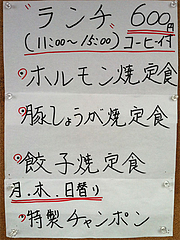 ランチ 600円
(11:00〜15:00) コーヒー付
ホルモン焼定食
豚しょうが焼定食
餃子焼定食
月、木、日替り
特製チャンポン